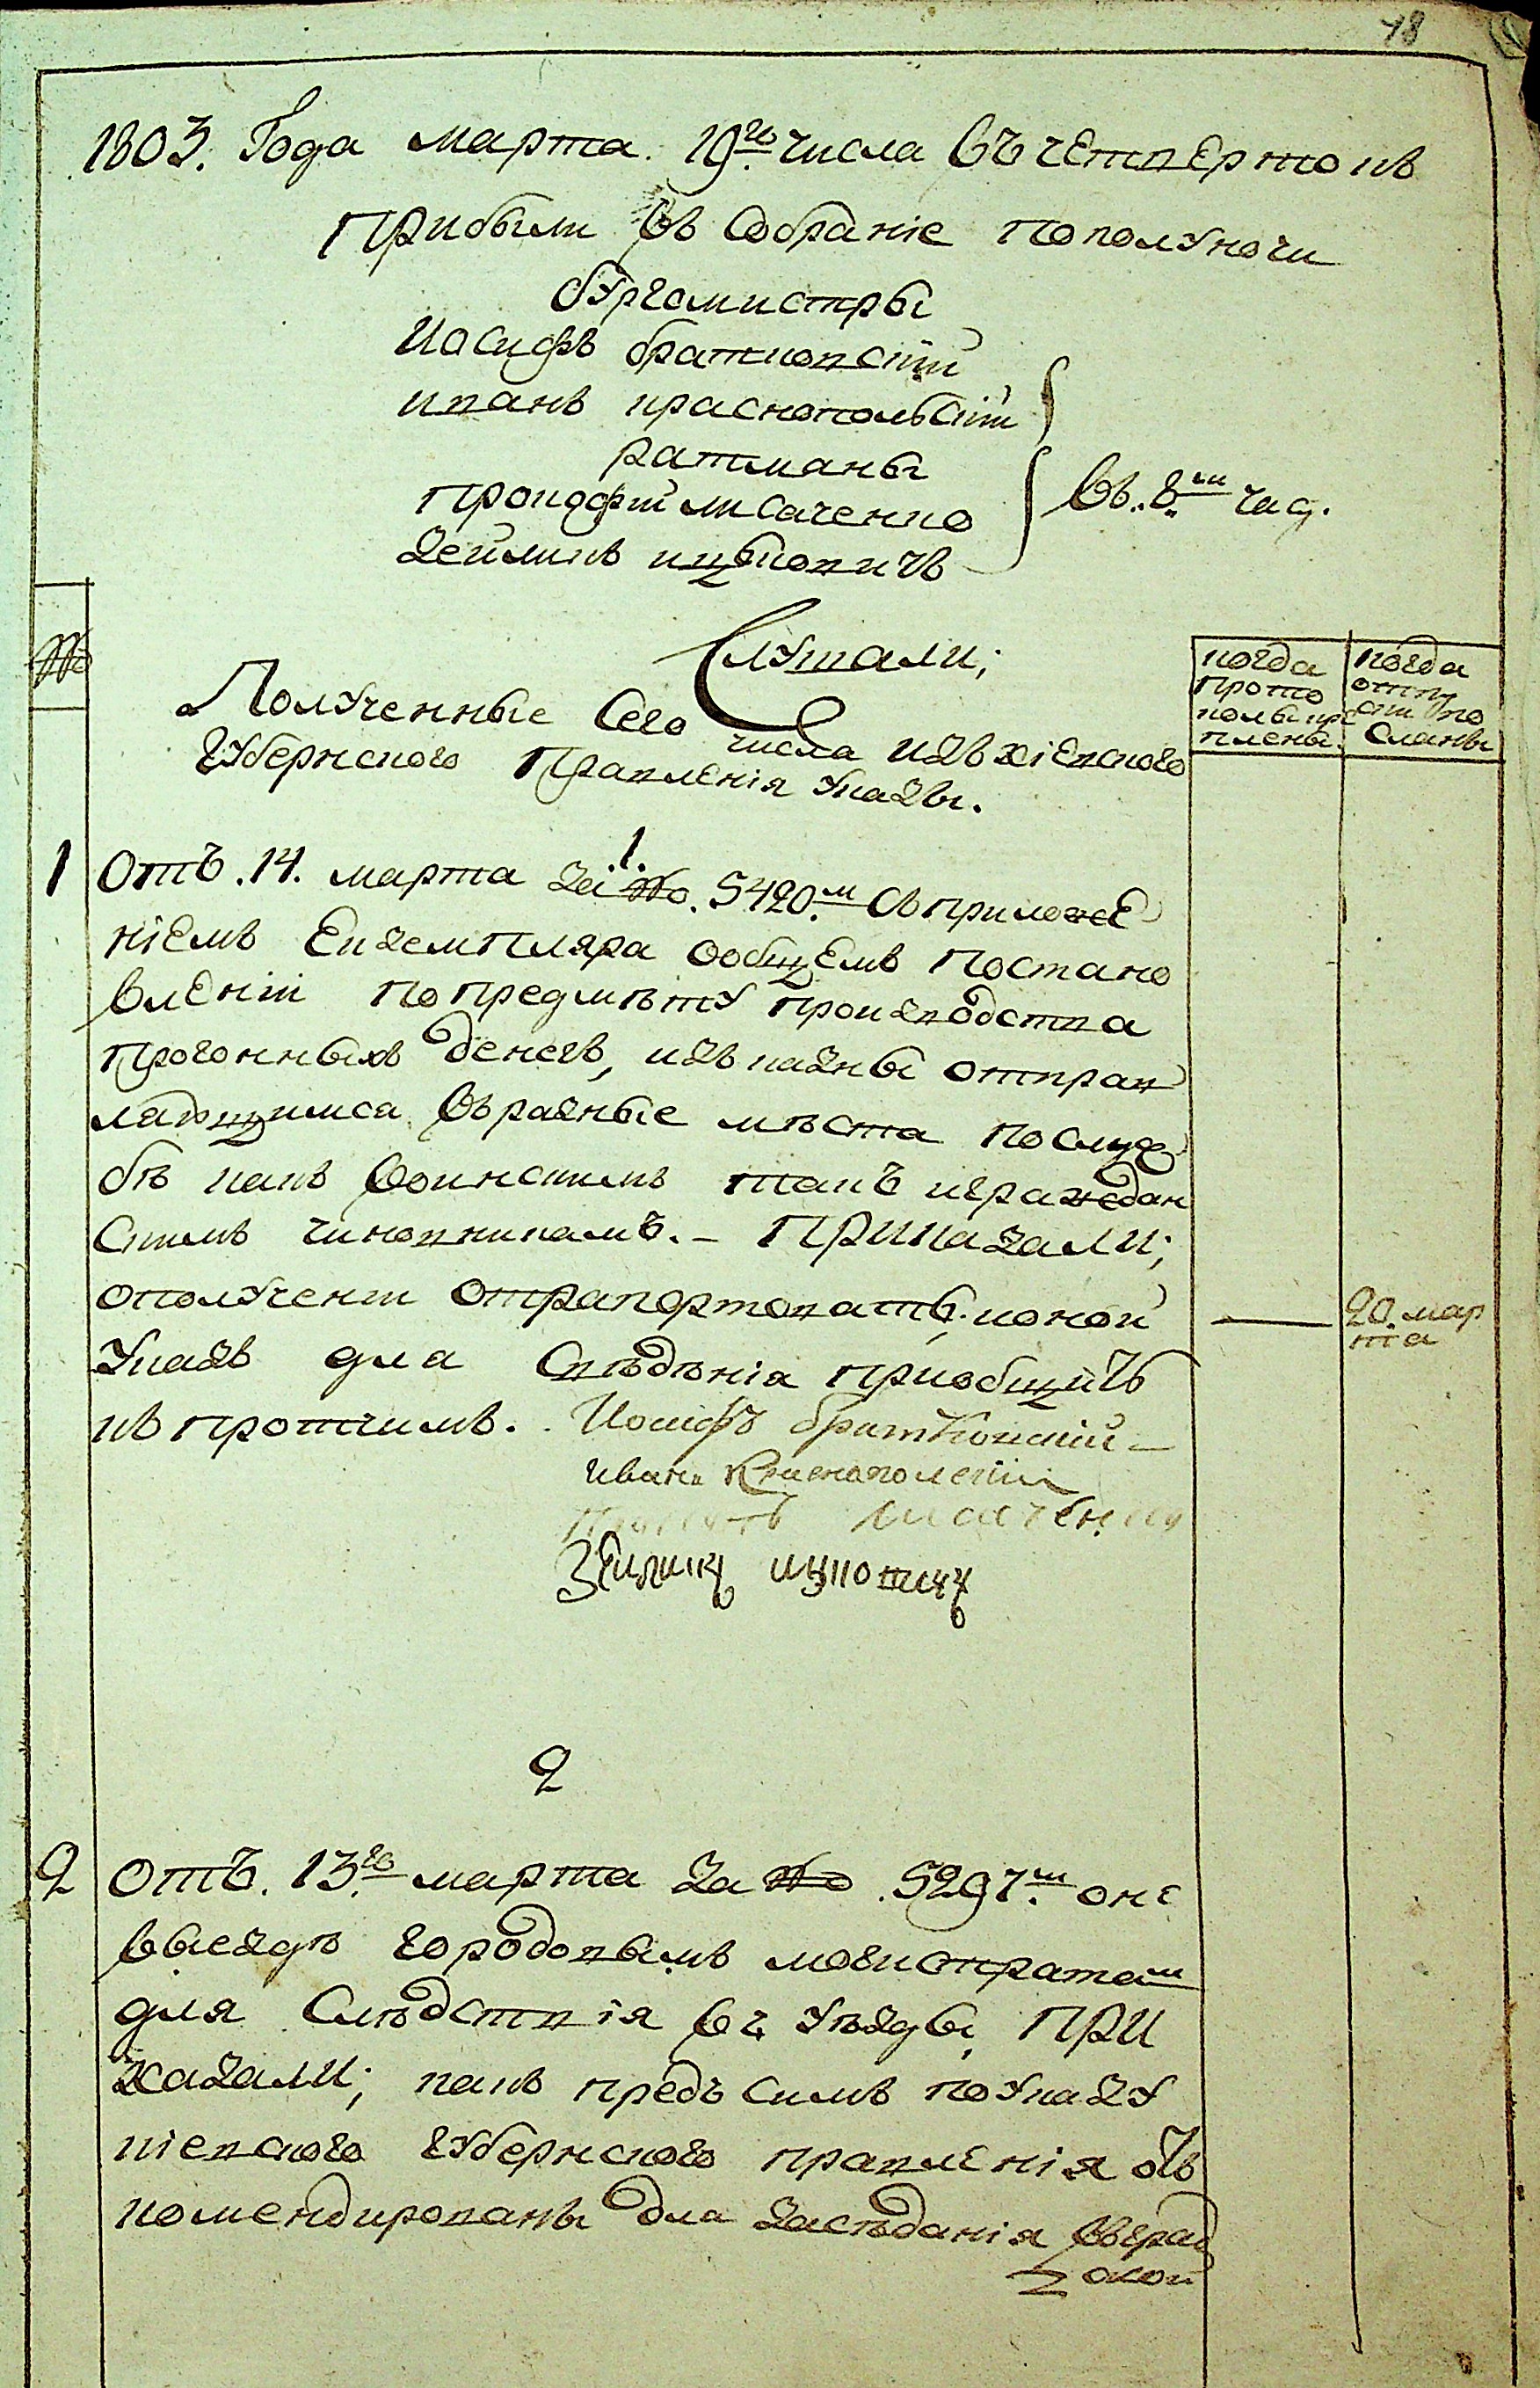 18
1803. Года марта. 19го числа въ четвертокъ
Прибыли въ Собраніе пополуночи
бургомистры
Иосифъ братковскій
иванъ краснопольскій
ратманы
Прокофій лисаченко
Зеиликъ ицковичъ
въ 8м час.
Слушали;
№
Полученные Сего числа изъ кіевского
губернского Правленія указы.
когда прото колы ис плены.
когда отпу ски по сланы
1.
1 Отъ. 14. марта за №. 5420.м Съ приложе
ніемъ Екземпляра ообщемъ постано
вленіи по предмѣту произвѡдства
прогонныхъ денегъ, изъ казны отправ
ляющимся въ разные мѣста по служ
бѣ какъ воинскимъ такъ и граждан
скимъ чиновникамъ. – ПРИказали;
ополученіи отрапортовать; ионой
Указъ для Свѣдѣнія приобщить
къ протчимъ.
20. мар та
Иосифъ братковскій
иванъ Краснополскій
лисаченко
Зеиликъ ицковичъ
2
2 отъ. 13.го марта за № .5297.м оне
выездѣ городовымъ магистратам
для Слѣдствія въ уѣзды, ПРИ
казали; какъ предъ симъ по указу
кіевского губернского правленія от
командированы для засѣданія въ град
ской